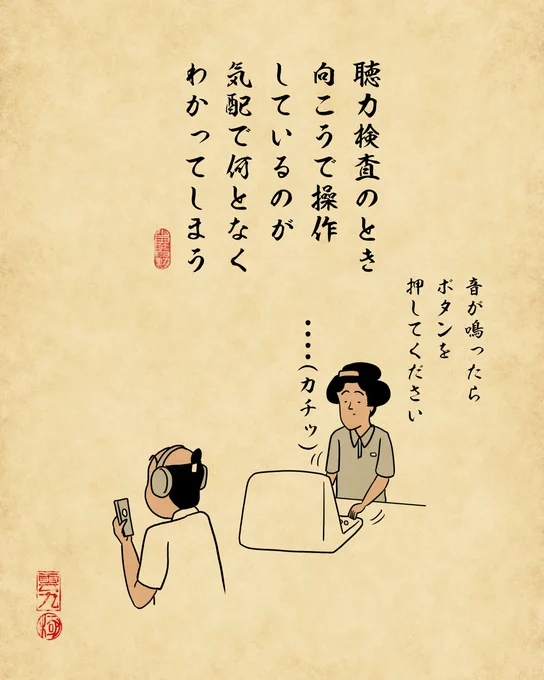 聴力検査のとき
向こうで操作
しているのが
気配で何となく
わかってしまう
音が鳴ったら
ボタンを
押してください
……(カチッ)